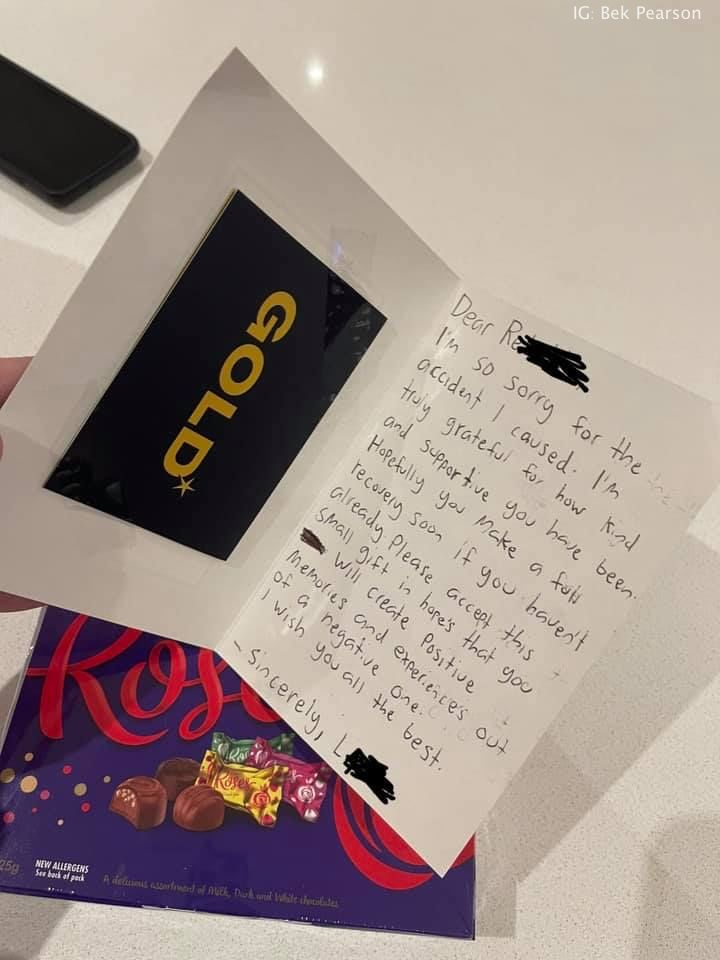 IG: Bek Pearson
GOLD
Dear Re
I'm so sorry for the
accident I caused. I'm
truly grateful for how kind
and supportive you have been.
Hopefully you make a full
recovery soon if you haven't
already. Please accept this
small gift in hope's that you
will create positive
memories and experience's out
of a negative one.
I wish you all the best.
- Sincerely, L
Roses
Roses
Roses
25g
NEW ALLERGENS
See back of pack
A delicious assortment of Milk, Dark and White chocolates